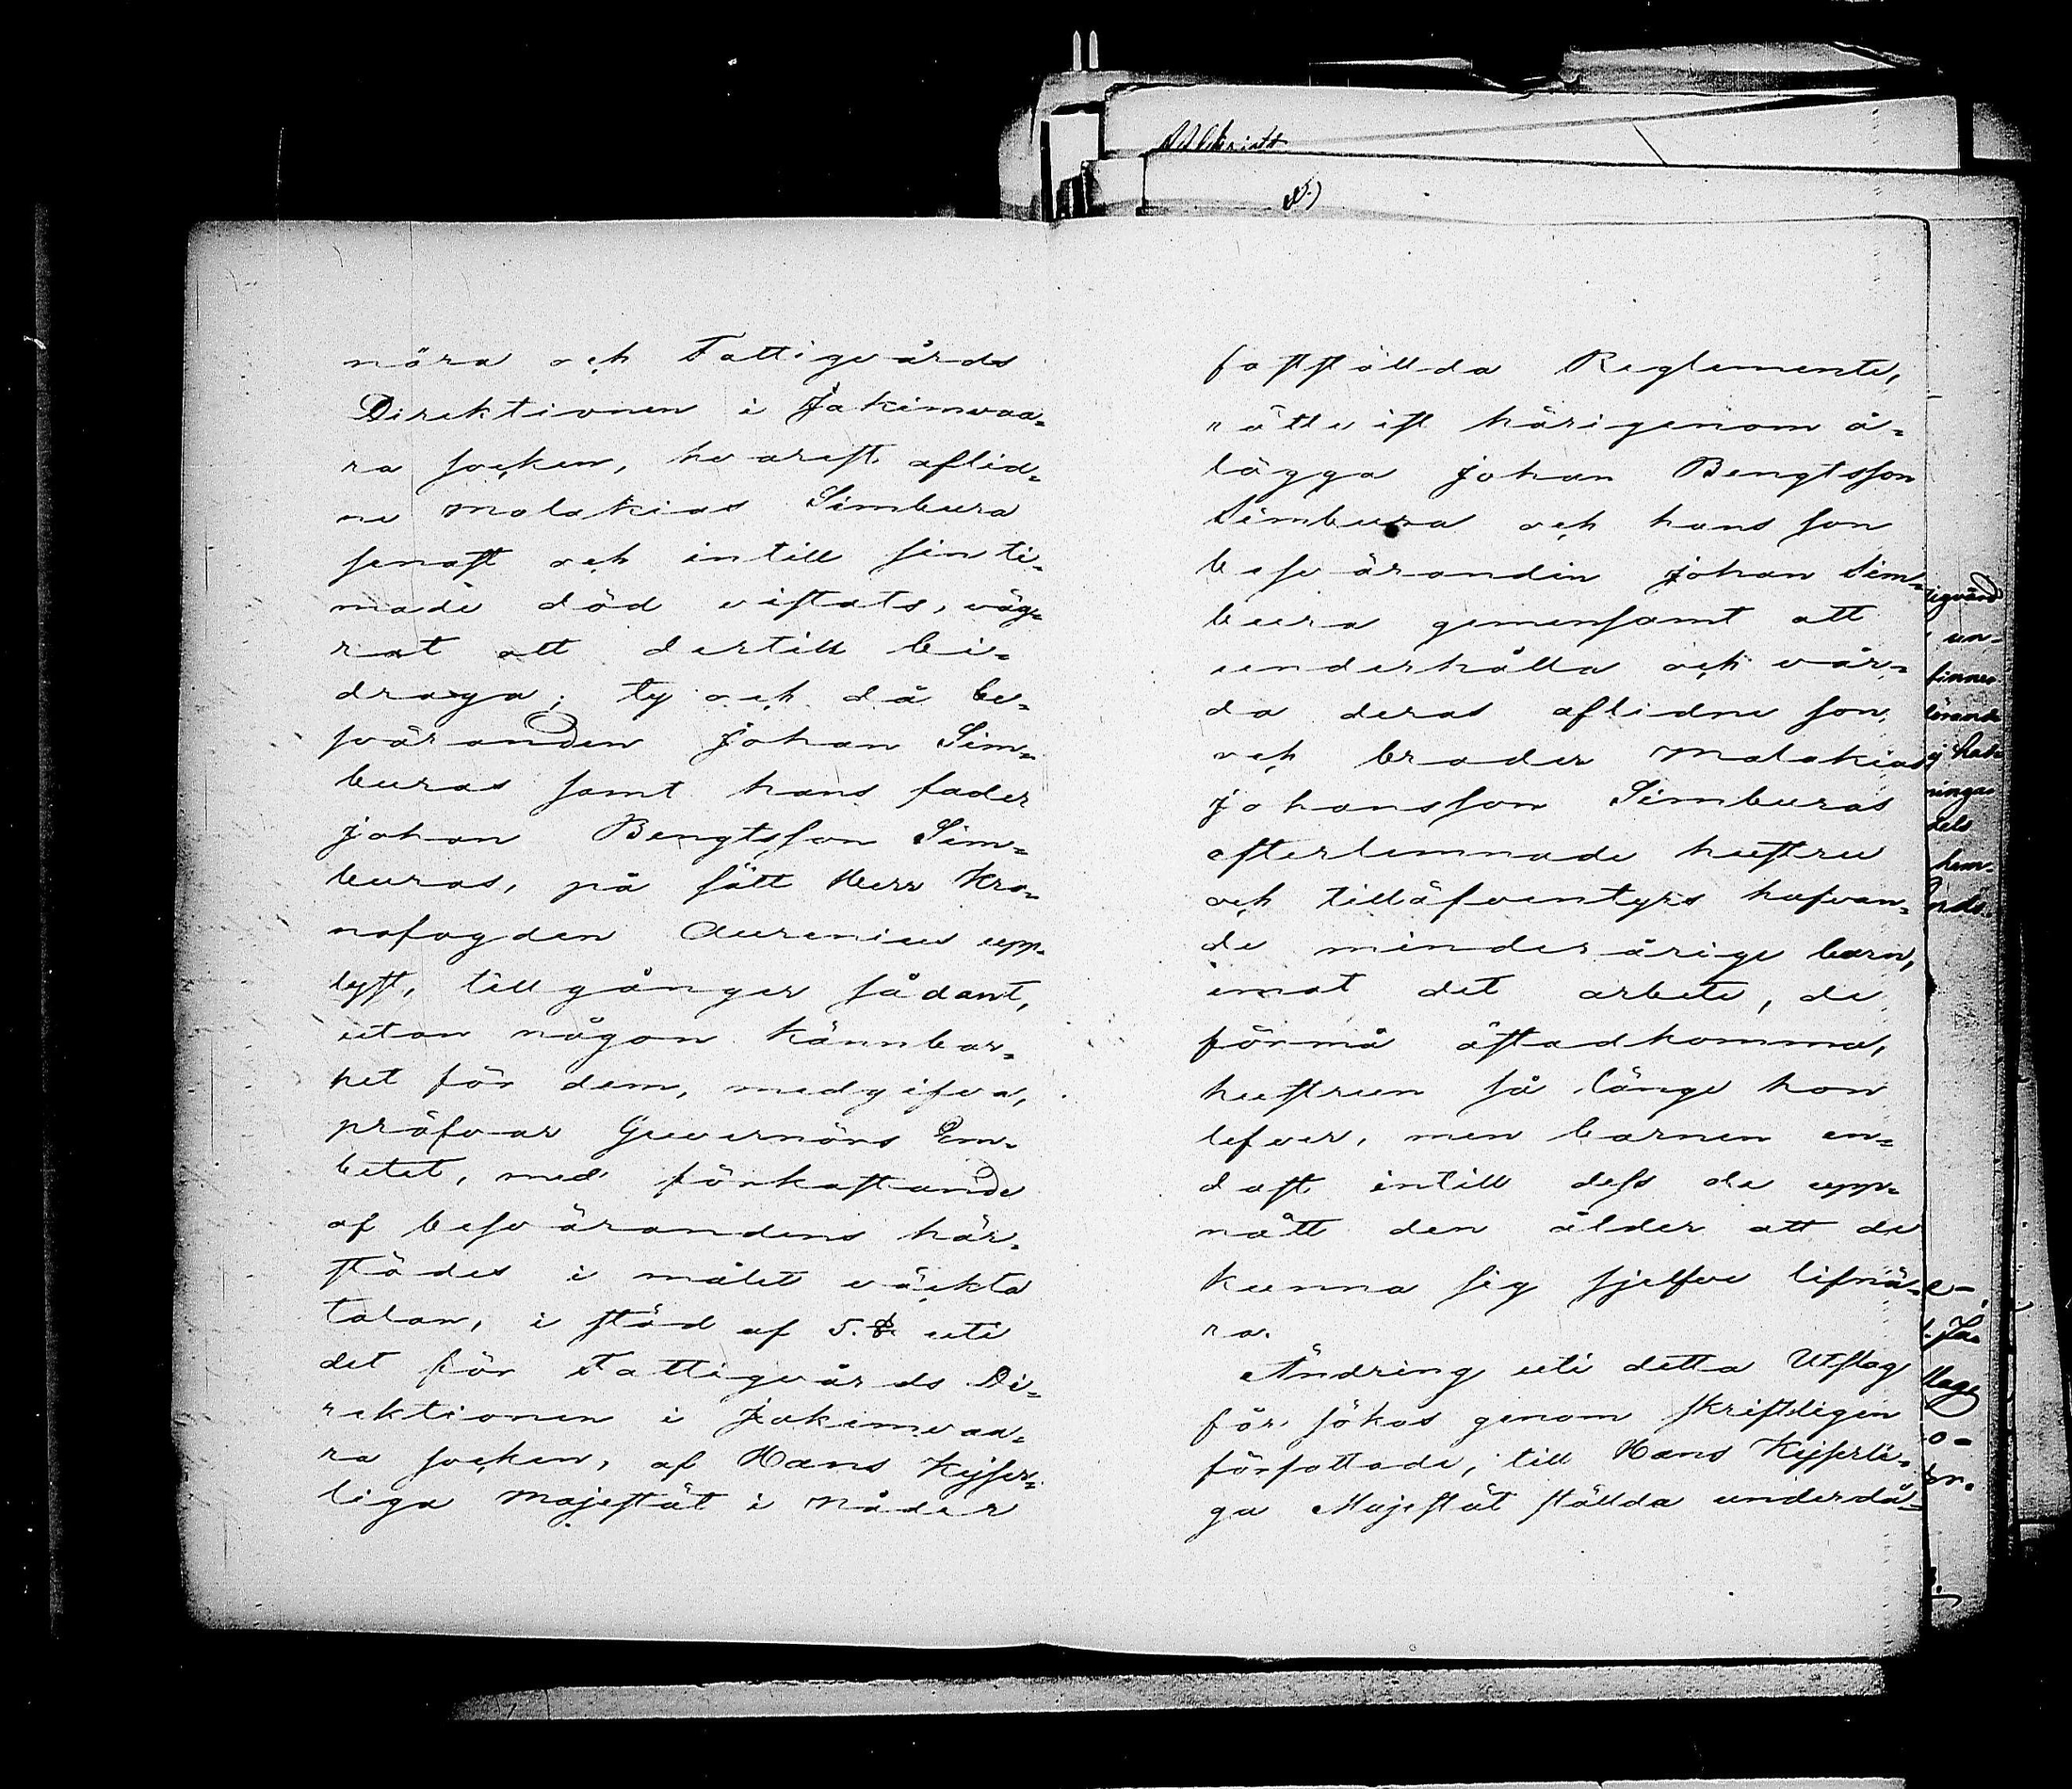 nära och Fattigvårds
Direktionen i Jakimvaa=
ra socken, hvarest aflid=
ne Malakias Simbura
senast och intill sin ti=
made död vistats, väg=
rat att dertill bi=
draga; ty och då be=
sväranden Johan Sim=
buras samt hans fader
Johan Bengtsson Sim=
buras, på sätt Herr Kro=
nofogden Aurenius upp=
lyst, tillgångar sådant,
utan någon kännbar=
het för dem, medgifva,
pröfvar Guvernörs Em=
betet, med förkastande
af besvärandens här=
städes i målet väckta
talan, i stöd af 5. § uti
det för Fattigvårds Di=
rektionen i Jakimvaa=
ra socken, af Hans Kejser=
liga Majestät i Nåder
fastställda Reglemente,
rättvist härigenom å=
lägga Johan Bengtsson
Simbura och hans son
besvärandin Johan Sim=
bura gemensamt att
underhålla och vår=
da deras aflidne son
och broder Malakias
Johansson Simburas
efterlemnade hustru
och tilläfventyrs hafvan=
de minderårige barn,
imot det arbete, de
förmå åstadkomma,
hustrun så länge hon
lefver, men barnen en=
dast intill dess de upp=
nått den ålder att de
kunna sig sjelfve lifnä=
ra.
Ändring uti detta Utslag
får sökas genom skriftligen
författade, till Hans Kejserli=
ga Majestät stälda underdå=